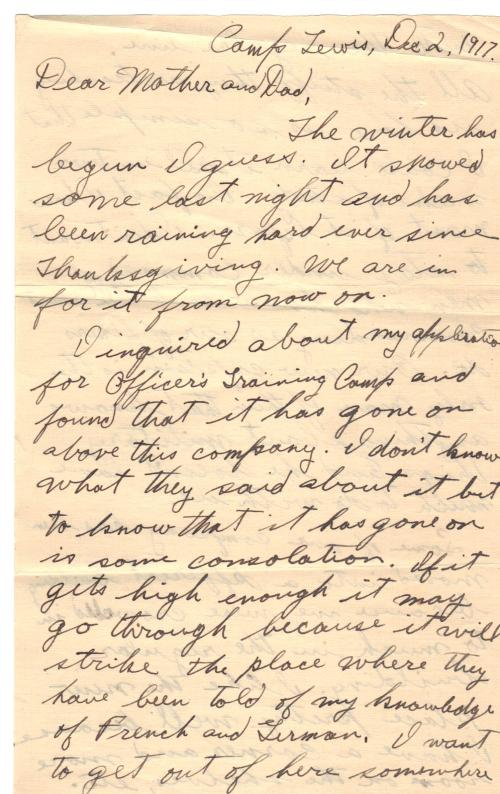 Camp Lewis, Dec 2, 1917.
Dear Mother and Dad,
The winter has
begun I guess. It snowed
some last night and has
been raining hard ever since
Thanksgiving. We are in
for it from now on.
I inquired about my application
for Officer's Training Camp and
found that it has gone on
above this company. I don't know
what they said about it but
to know that it has gone on
is some consolation. If it
gets high enough it may
go through because it will
strike the place where they
have been told of my knowledge
of French and German. I want
to get out of here somewhere